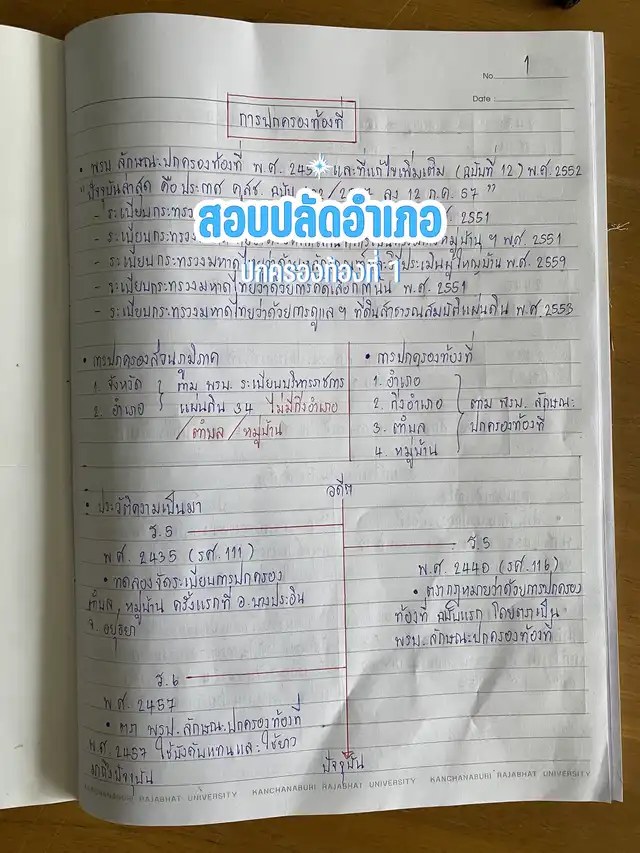 No. 1
Date :
การปกครองท้องที่
• พรบ ลักษณะปกครองท้องที่ พ.ศ. 245 และที่แก้ไขเพิ่มเติม (ฉบับที่ 12) พ.ศ. 2552
"ปัจจุบันล่าสุด คือ ประกาศ คสช. ฉบับ ลง 12 ก.ค. 57"
สอบปลัดอำเภอ
ปกครองท้องที่ 1
- ระเบียบกระทรวง . 2551
- ระเบียบกระทรวง หมู่บ้าน ฯ พ.ศ. 2551
- ระเบียบกระทรวงมหาดไทยว่าด้วย ประเมินผู้ใหญ่บ้าน พ.ศ. 2559
- ระเบียบกระทรวงมหาดไทยว่าด้วยการคัดเลือกกำนัน พ.ศ. 2551
- ระเบียบกระทรวงมหาดไทยว่าด้วยการดูแล ฯ ที่ดินสาธารณสมบัติแผ่นดิน พ.ศ. 2553
• การปกครองส่วนภูมิภาค
1. จังหวัด
2. อำเภอ
ตาม พรบ. ระเบียบบริหารราชการ
แผ่นดิน 34 ไม่มีกิ่งอำเภอ
/ตำบล/หมู่บ้าน
• การปกครองท้องที่
1. อำเภอ
2. กิ่งอำเภอ
3. ตำบล
4. หมู่บ้าน
ตาม พรบ. ลักษณะ
ปกครองท้องที่
อดีต
• ประวัติความเป็นมา
ร.5
พ.ศ. 2435 (รศ.111)
• ทดลองจัดระเบียบการปกครอง
ตำบล, หมู่บ้าน ครั้งแรกที่ อ.บางปะอิน
จ. อยุธยา
ร.5
พ.ศ. 2440 (รศ. 116)
• ตรากฎหมายว่าด้วยการปกครอง
ท้องที่ ฉบับแรก โดยตราเป็น
พรบ. ลักษณะปกครองท้องที่
ร.6
พ.ศ. 2457
• ตรา พรบ. ลักษณะปกครองท้องที่
พ.ศ. 2457 ใช้บังคับแทนและใช้ยาว
มาถึงปัจจุบัน
ปัจจุบัน
KANCHANABURI RAJABHAT UNIVERSITY KANCHANABURI RAJABHAT UNIVERSITY KANCHANABURI RAJABHAT UNIVERSITY